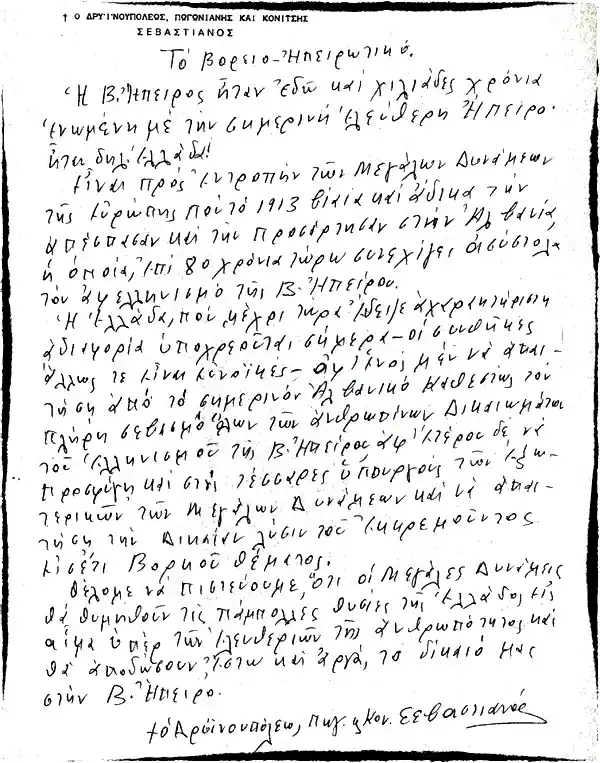 † Ο ΔΡΥΪΝΟΥΠΟΛΕΩΣ, ΠΩΓΩΝΙΑΝΗΣ ΚΑΙ ΚΟΝΙΤΣΗΣ
ΣΕΒΑΣΤΙΑΝΟΣ
Τό Βορειο-Ἠπειρωτικό.
Ἡ Β. Ἤπειρος ἦταν ἐδῶ καί χιλιάδες χρόνια
ἑνωμένη μέ τήν σημερινή ἐλεύθερη Ἤπειρο.
ἦταν δηλ. Ἑλλάδα!
Εἶναι πρός ἐντροπήν τῶν Μεγάλων Δυνάμεων
τῆς Εὐρώπης πού τό 1913 βίαια καί ἄδικα τήν
ἀπέσπασαν καί τήν προσάρτησαν στήν Ἀλβανία,
ἡ ὁποία, ἐπί 80 χρόνια τώρα συνεχίζει ἀσύστολα
τόν ἀφελληνισμό τῆς Β. Ἠπείρου.
Ἡ Ἑλλάδα, πού μέχρι τώρα ἔδειξε ἀχαρακτήριστη
ἀδιαφορία ὑποχρεοῦται σήμερα – οἱ συνθῆκες
ἄλλως τε εἶναι εὐνοϊκές – ἀφ' ἑνός μέν νά ἀπαι-
τήση ἀπό τό σημερινόν Ἀλβανικό καθεστώς τόν
πλήρη σεβασμό ὅλων τῶν ἀνθρωπίνων Δικαιωμάτων
τοῦ Ἑλληνισμοῦ τῆς Β. Ἠπείρου, ἀφ' ἑτέρου δέ νά
προσφύγη καί στούς τέσσαρες ὑπουργούς τῶν Ἐξω-
τερικῶν τῶν Μεγάλων Δυνάμεων καί νά ἀπαι-
τήση τήν Δικαίαν λύσιν τοῦ ἐκκρεμοῦντος
εἰσέτι Βορ/κοῦ θέματος.
Θέλομε νά πιστεύουμε, ὅτι οἱ Μεγάλες Δυνάμεις
θά θυμηθοῦν τίς πάμπολλες θυσίες τῆς Ἑλλάδος εἰς
αἷμα ὑπέρ τῶν ἐλευθεριῶν τῆς ἀνθρωπότητος καί
θά ἀποδώσουν, ἔστω καί ἀργά, τό δίκαιό μας
στήν Β. Ἤπειρο.
† ὁ Δρυϊνουπόλεως, Πωγ. & Κον. Σεβαστιανός